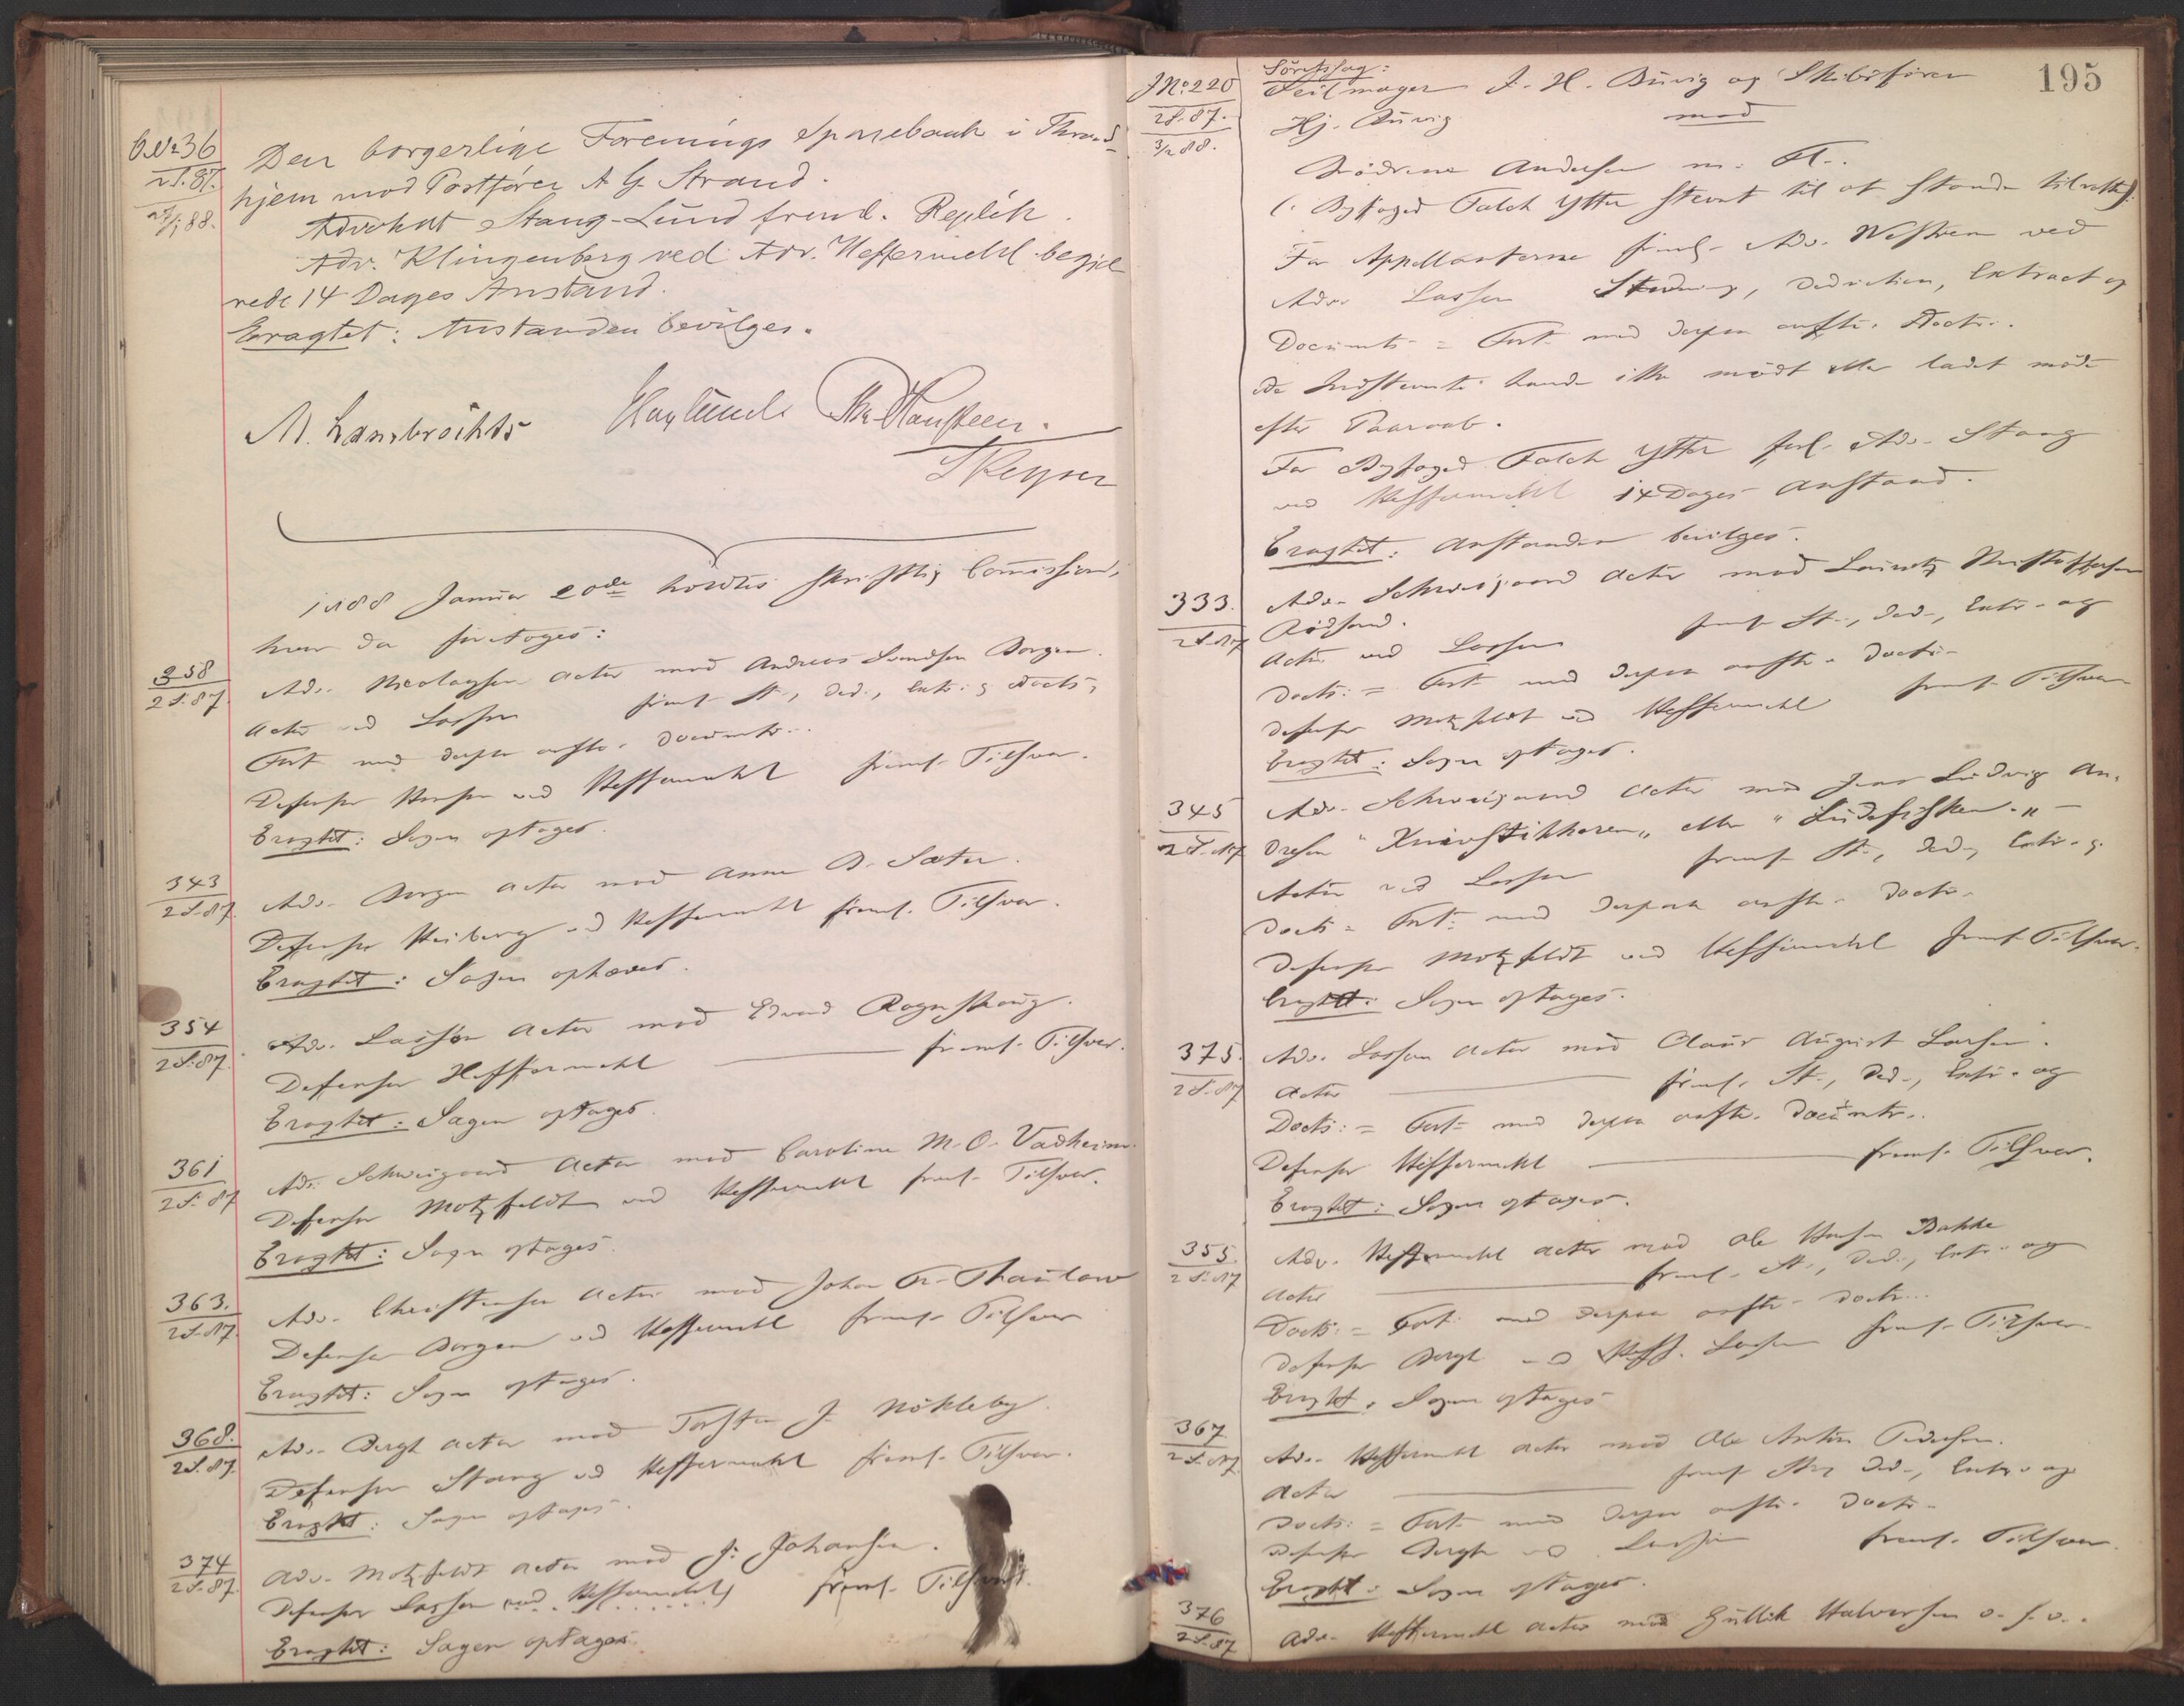 Den borgerlige Forenings Sparebank i Thrond-
hjem mod Postfører A G. Strand.
Advokat Stang-Lund freml. Replik.
Adv. Klingenberg ved Adv. Heffermehl begjæ
rede 14 Dages Anstand.
Eragtet: Anstanden bevilges.
M. Lambrechts
1888 Januar 20de holdtes skriftlig Commission,
hvor da foretoges:
358
2S.87.
Adv. Nicolaysen Actor mod Andreas Svendsen Borgen.
Actor ved Lasson freml St., Ded., Extr. & Docts,
Fort med derpaa anfte. Documtr.
Defensor ved Heffermehl freml. Tilsvar.
Eragtet: Sagen optages.
343
2S.87.
Adv. Borgen Actor mod Anne B. Sæter.
Defensor Heiberg ved Heffermehl freml. Tilsvar.
Eragtet: Sagen ophæves.
354
2S.87.
Adv. Lasson Actor mod Edvard
Defensor Heffermehl freml. Tilsvar.
Eragtet: Sagen optages.
361
2S.87
Adv. Schweigaard Actor mod Caroline M. O. Vadheim.
Defensor Motzfeldt ved Heffermehl freml. Tilsvar.
Eragtet: Sagen optages.
363.
2S.87.
Adv. Christensen Actor mod Johan Fr. Thaulow
Defensor Borgen ved Heffermehl freml. Tilsvar
Eragtet: Sagen optages.
368.
2S.87.
Adv. Bergh Actor mod Torsten J. Nökleby.
Defensor Stang ved Heffermehl freml. Tilsvar.
Eragtet: Sagen optages.
374
2S.87.
Adv. Motzfeldt Actor mod J. Johansen.
Defensor Lasson ved Heffermehl freml. Tilsvar.
Eragtet: Sagen optages.
195
JNo. 220
2S.87.
3/288.
Söretssag:
Seilmager J. H. Buvig og Skibsfører
Hj. Buvig mod
Brödrene Andersen m. Fl.
(Byfoged Falch Ytter stevnt til at staae tilrette).
For Appellanterne freml. Adv. ved
Adv. Lasson Stevning, Deduction, Extract og
Documts = Fort med derpaa anfte. Docts.
De Indstevnte havde ikke mödt eller ladet möde
efter Paaraab.
For Byfoged Falch Ytter Adv. Stang
ved Heffermehl 14 Dages Anstand.
Eragtet: Anstanden bevilges.
333.
2S.87
Adv. Schweigaard Actor mod Lauritz Kristoffersen
Rödsand.
Actor ved Lasson freml St., Ded., Extr. og
Docts: = Fort med derpaa anfte. Doctr.
Defensor Motzfeldt ved Heffermehl freml. Tilsvar
Eragtet: Sagen optages.
345
2S.87
Adv. Schweigaard Actor mod Jens Ludvig An-
dresen "Knivstikkeren" eller "Ludefisken".
Actor ved Lasson freml St., Ded., Extr. &
Docts = Fort. med derpaa anfte. Doctr.
Defensor Motzfeldt ved Heffermehl freml. Tilsvar.
Eragtet: Sagen optages.
375.
2S.87
Adv. Lasson Actor mod Claus August Larsen.
Actor freml. St., Ded., Extr. og
Docts: = Fort med derpaa anfte. Documtr.
Defensor Heffermehl freml. Tilsvar.
Eragtet: Sagen optages.
355.
2S.87
Adv. Heffermehl Actor mod Ole Hansen Bakke
Actor freml. St., Ded., Extr. og
Docts: = Fort med derpaa anfte. Doctr.
Defensor Bergh ved Lasson freml. Tilsvar.
Eragtet: Sagen optages
367
2S.87
Adv. Heffermehl Actor mod Ole Anton Pedersen.
Actor freml Ded., Extr. og
Docts: = Fort med derpaa anfte. Doctr.
Defensor Bergh ved Lasson freml. Tilsvar.
Eragtet: Sagen optages.
376
2S.87
Adv. Heffermehl Actor mod Gullik Halvorsen o. s. v.